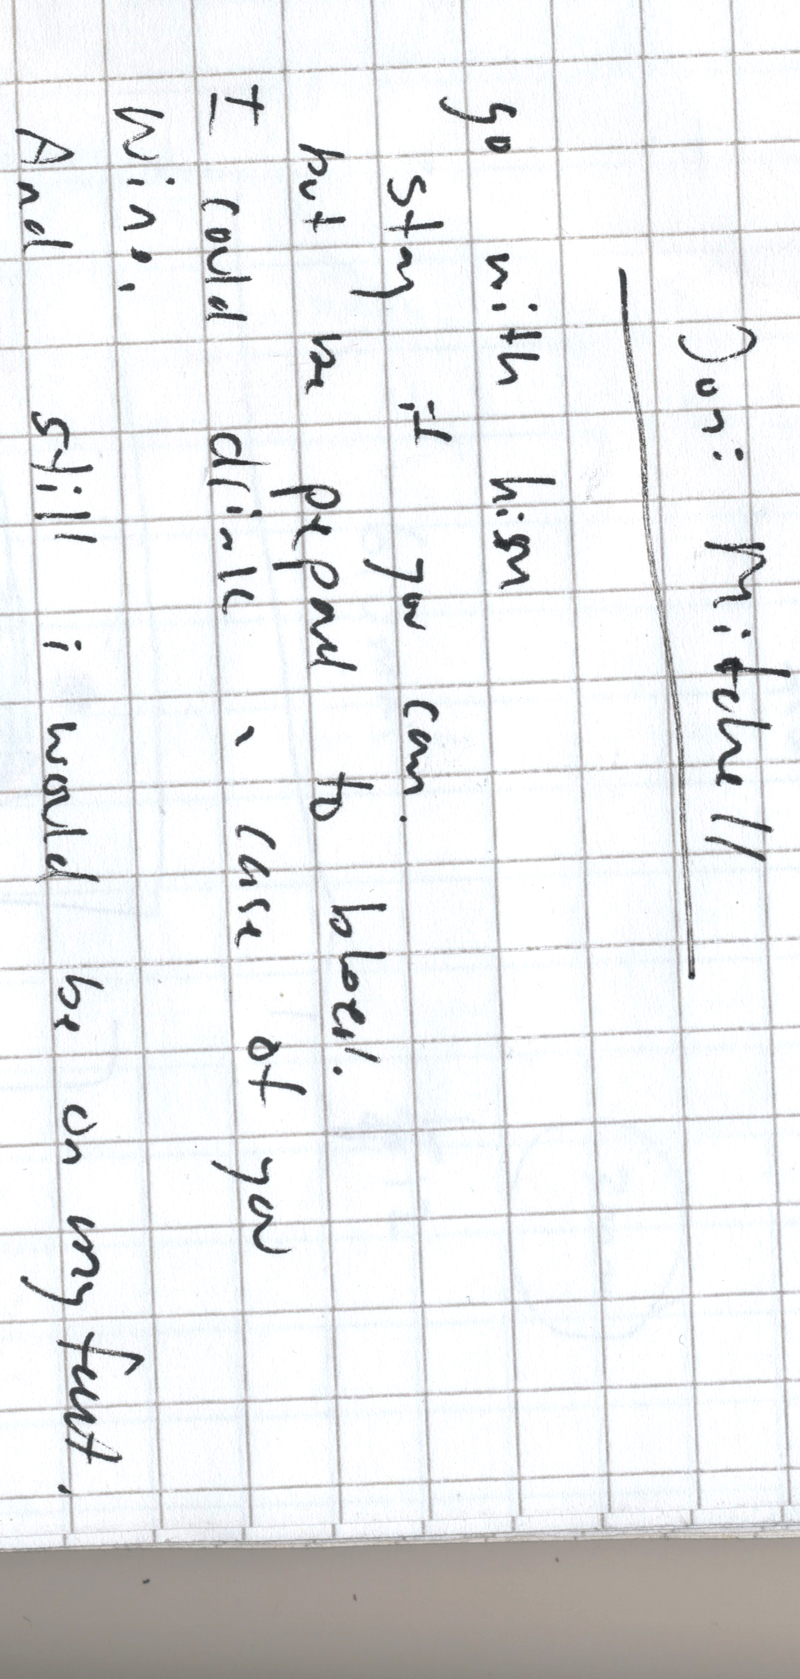 Joni Mitchell
go with him
stay if you can.
but be prepard to bleed.
I could drink a case of you
Wine,
And still i would be on my feet.